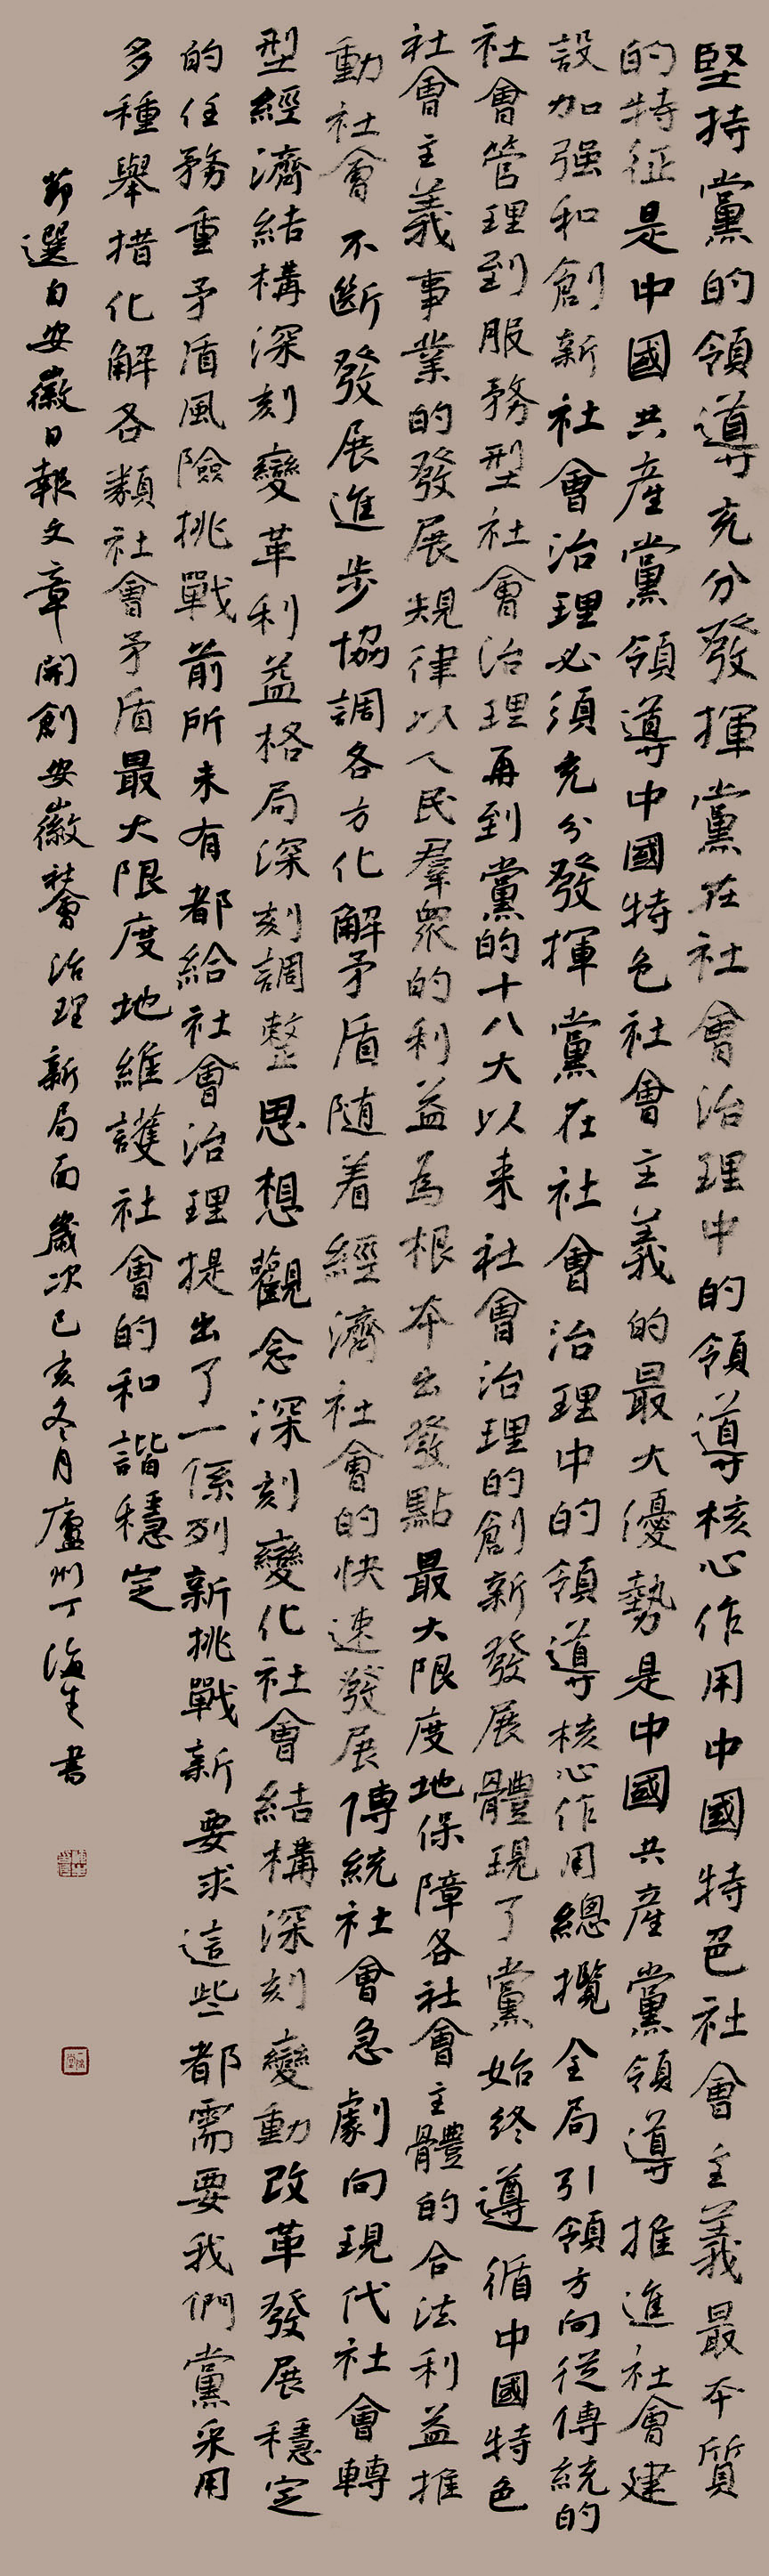 堅持黨的領導充分發揮黨在社會治理中的領導核心作用中國特色社會主義最本質
的特征是中國共產黨領導中國特色社會主義的最大優勢是中國共產黨領導推進社會建
設加强和創新社會治理必須充分發揮黨在社會治理中的領導核心作用總攬全局引領方向從傳統的
社會管理到服務型社會治理再到黨的十八大以来社會治理的創新發展體現了黨始終遵循中國特色
社會主義事業的發展規律以人民羣眾的利益為根本出發點最大限度地保障各社會主體的合法利益推
動社會不斷發展進步協調各方化解矛盾随着經濟社會的快速發展傳統社會急劇向現代社會轉
型經濟結構深刻變革利益格局深刻調整思想觀念深刻變化社會結構深刻變動改革發展穩定
的任務重矛盾風險挑戰前所未有都給社會治理提出了一係列新挑戰新要求這些都需要我們黨采用
多種舉措化解各類社會矛盾最大限度地維護社會的和諧穩定
節選自安徽日報文章開創安徽社會治理新局面歲次己亥冬月廬州丁海生書